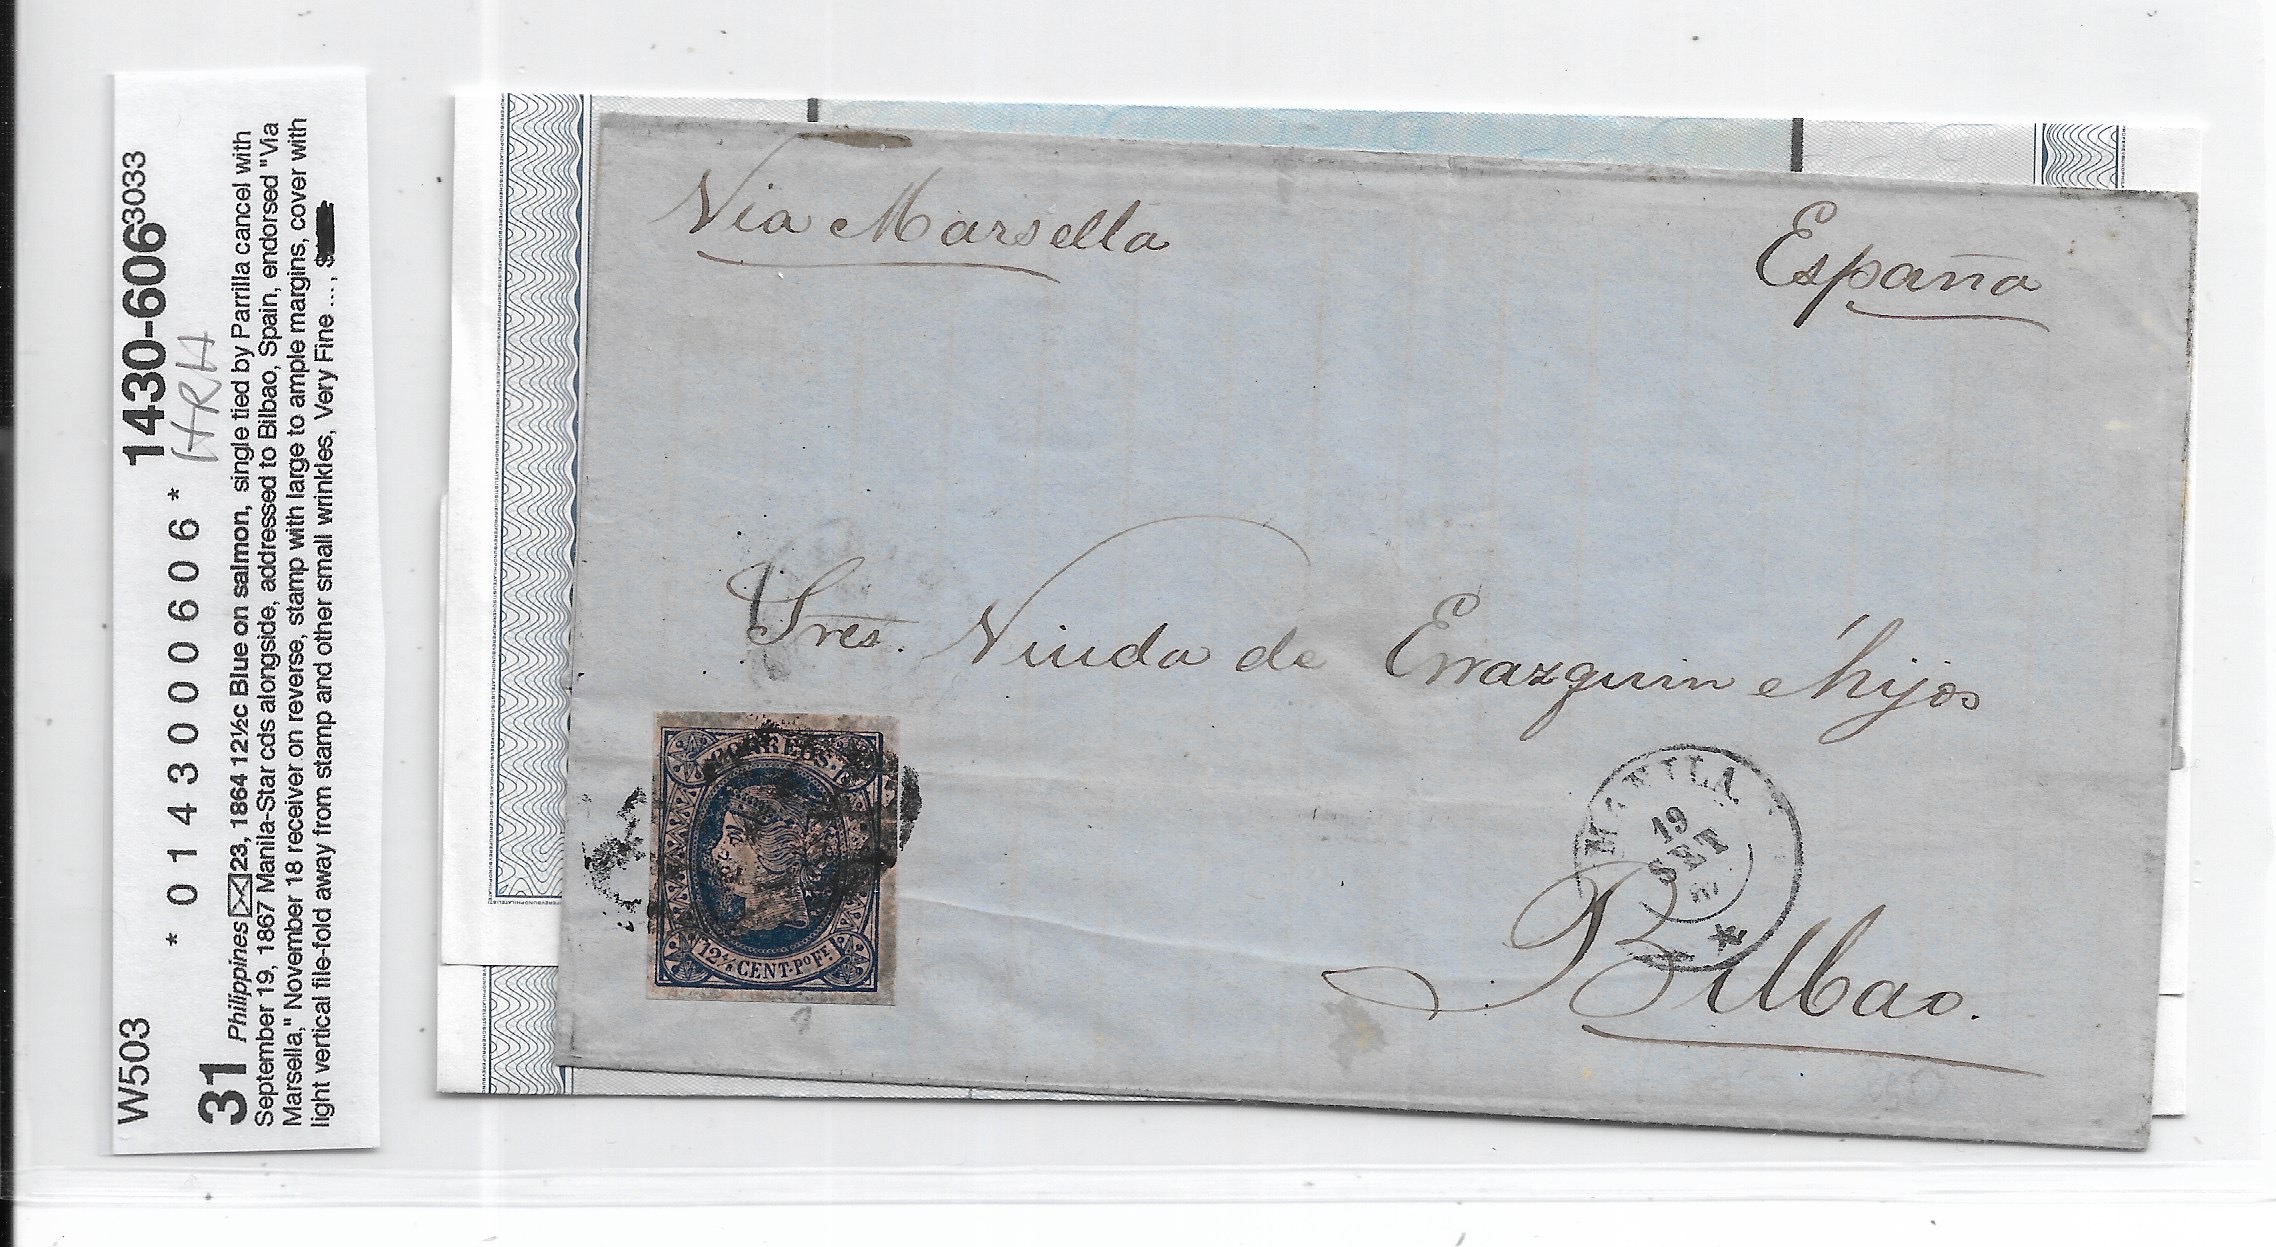 W503 1430-606 3033
* 0 1 4 3 0 0 0 6 0 6 * HRH
31 Philippines ✉ 23, 1864 12½c Blue on salmon, single tied by Parrilla cancel with
September 19, 1867 Manila-Star cds alongside, addressed to Bilbao, Spain, endorsed "Via
Marsella," November 18 receiver on reverse, stamp with large to ample margins, cover with
light vertical file-fold away from stamp and other small wrinkles, Very Fine ..., $
Via Marsella
España
Sres. Viuda de Errazquin é hijos
Bilbao.
CORREOS
12 4/8 CENT. Po Fe.
MANILA
19
SET